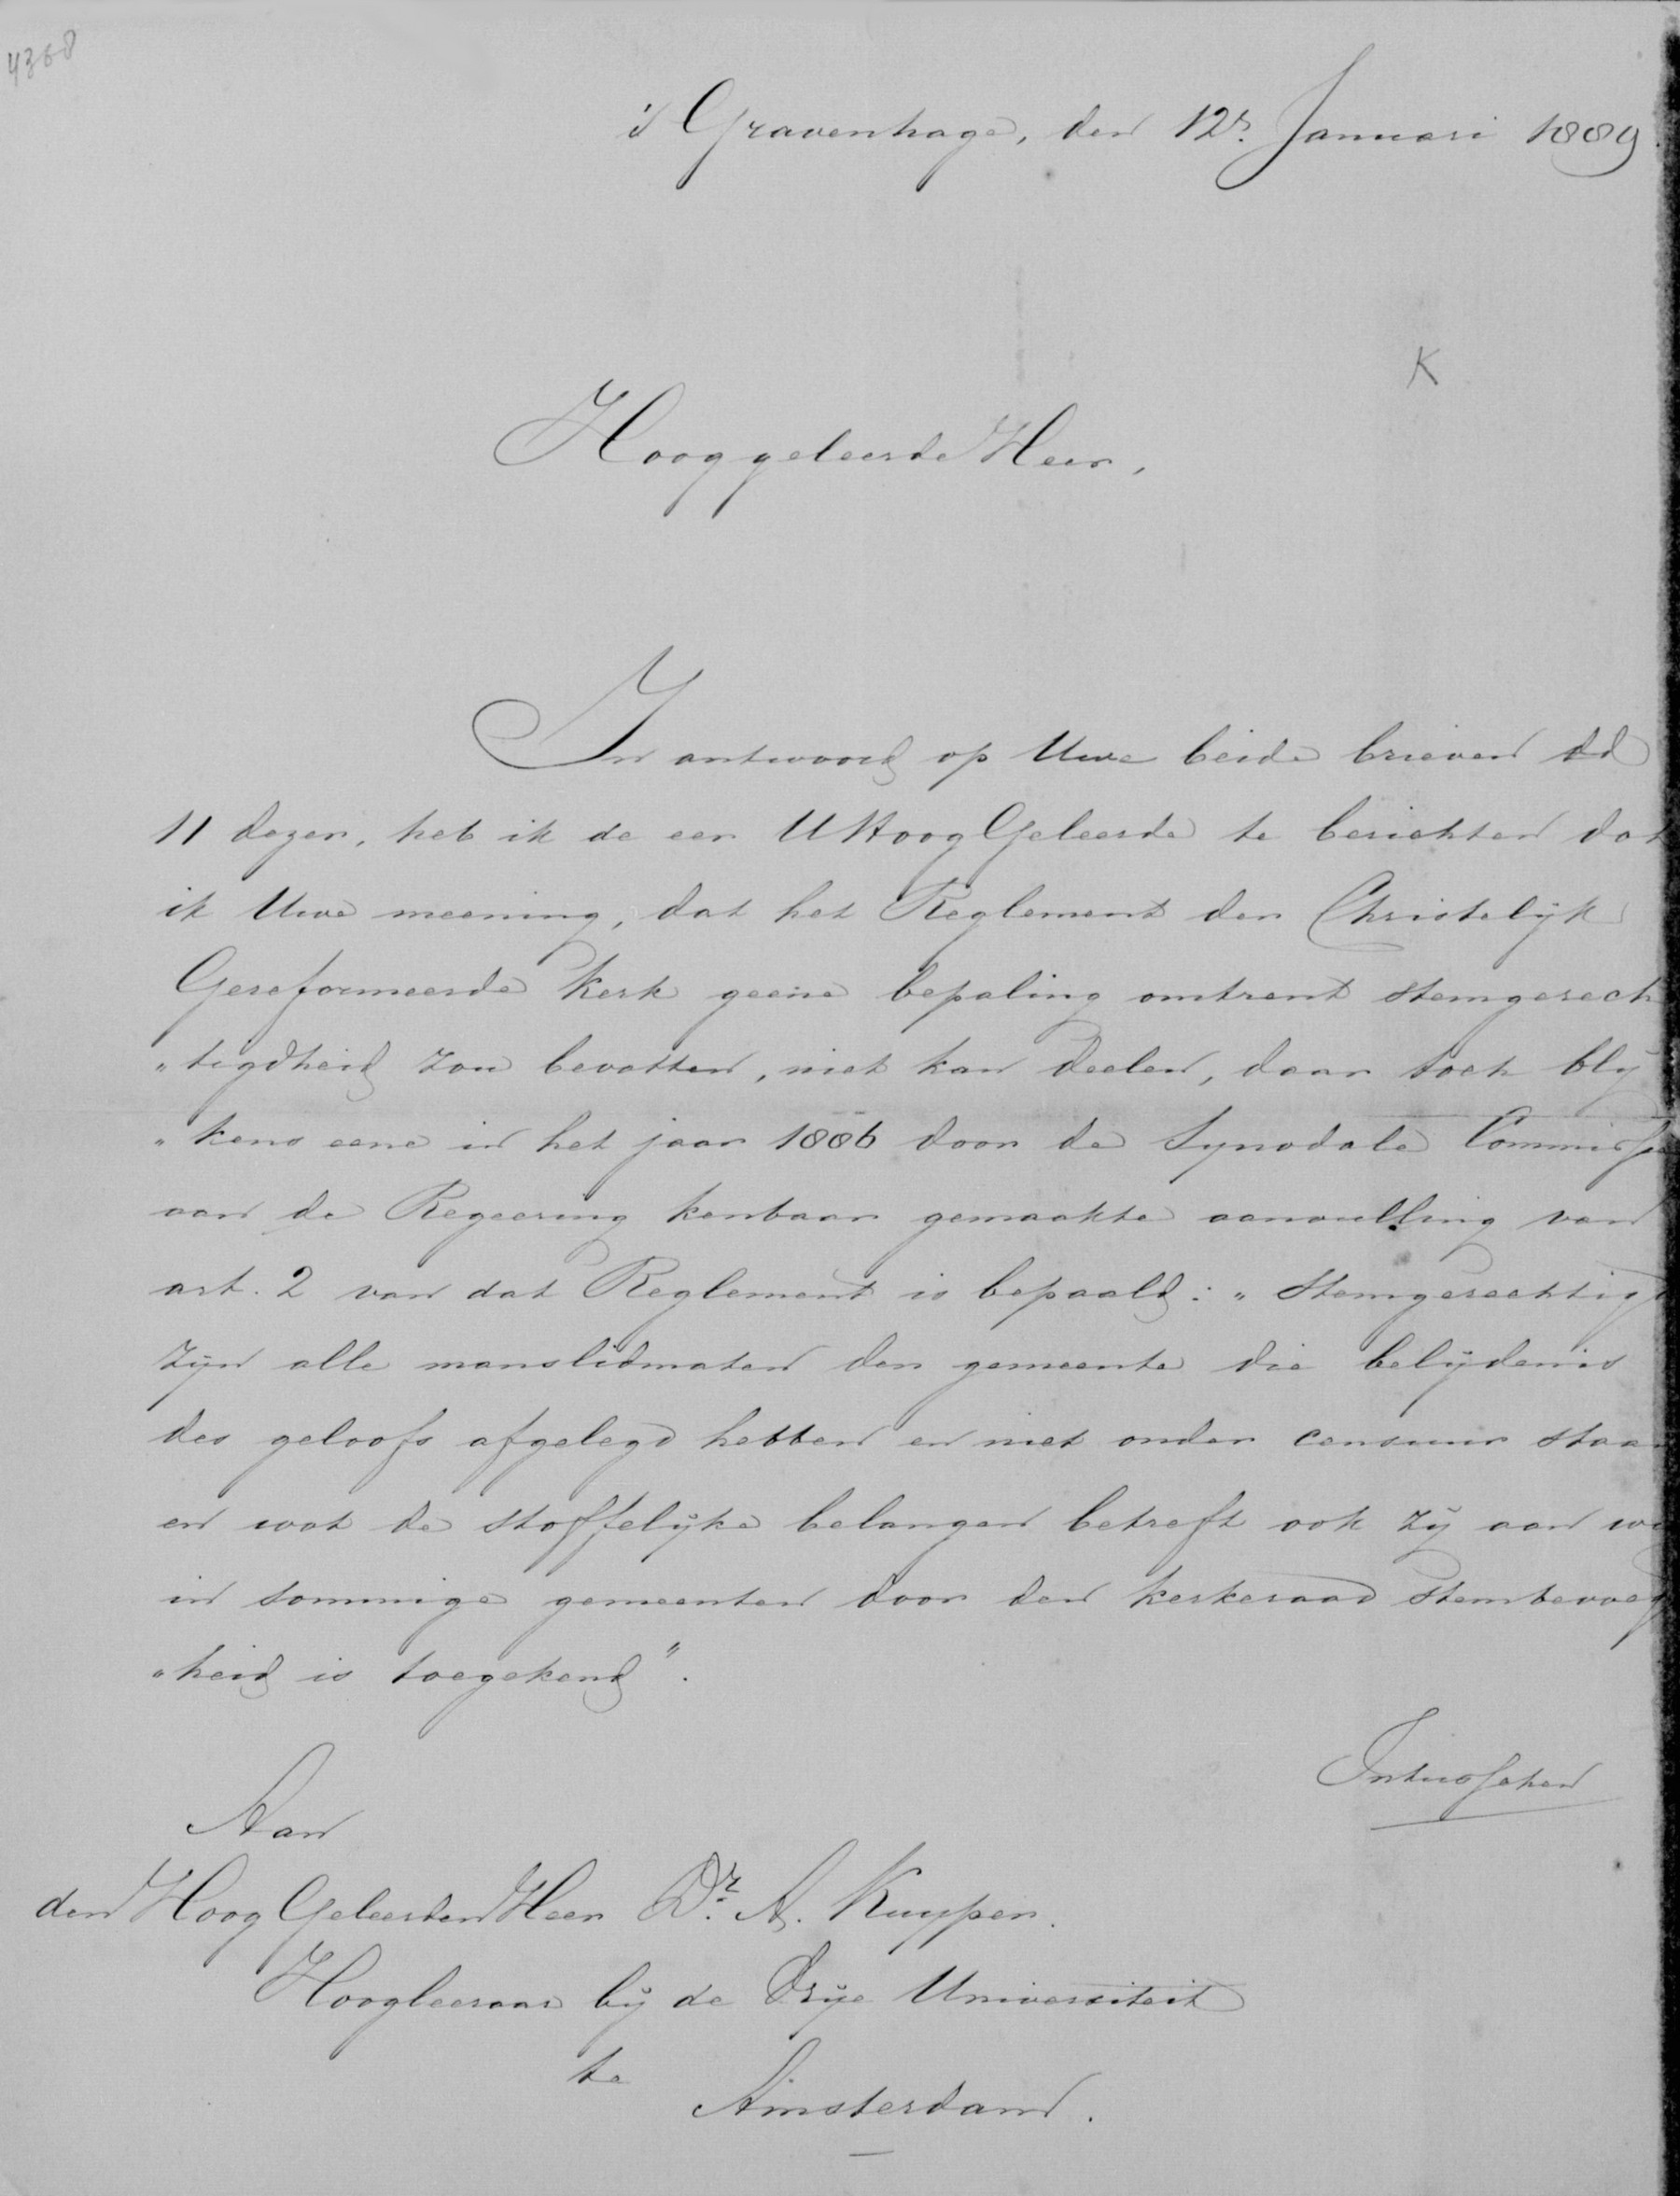 4368
's Gravenhage, den 12n. Januari 1889.
K
Hooggeleerde Heer,
In antwoord op Uwe beide brieven dd
11 dezer, heb ik de eer UHoogGeleerde te berichten dat
ik Uwe meening, dat het Reglement der Christelijk
Gereformeerde Kerk geene bepaling omtrent stemgerech
„tigdheid zou bevatten, niet kan deelen, daar toch blij
„kens eene in het jaar 1886 door de Synodale Commissie
aan de Regeering kenbaar gemaakte aanvulling van
art. 2 van dat Reglement is bepaald: „Stemgerechtigd
zijn alle manslidmaten der gemeente die belijdenis
des geloofs afgelegd hebben en niet onder censuur staan
en wat de stoffelijke belangen betreft ook zij aan wie
in sommige gemeenten door den kerkeraad stembevoegd
„heid is toegekend".
Intusschen
Aan
den HoogGeleerden Heer Dr. A. Kuyper.
Hoogleeraar bij de Vrije Universiteit
te
Amsterdam.